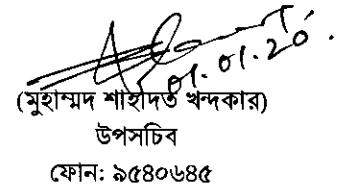 01.01.20
(মুহাম্মদ শাহাদত খন্দকার)
উপসচিব
ফোন: ৯৫৪০৬৪৫